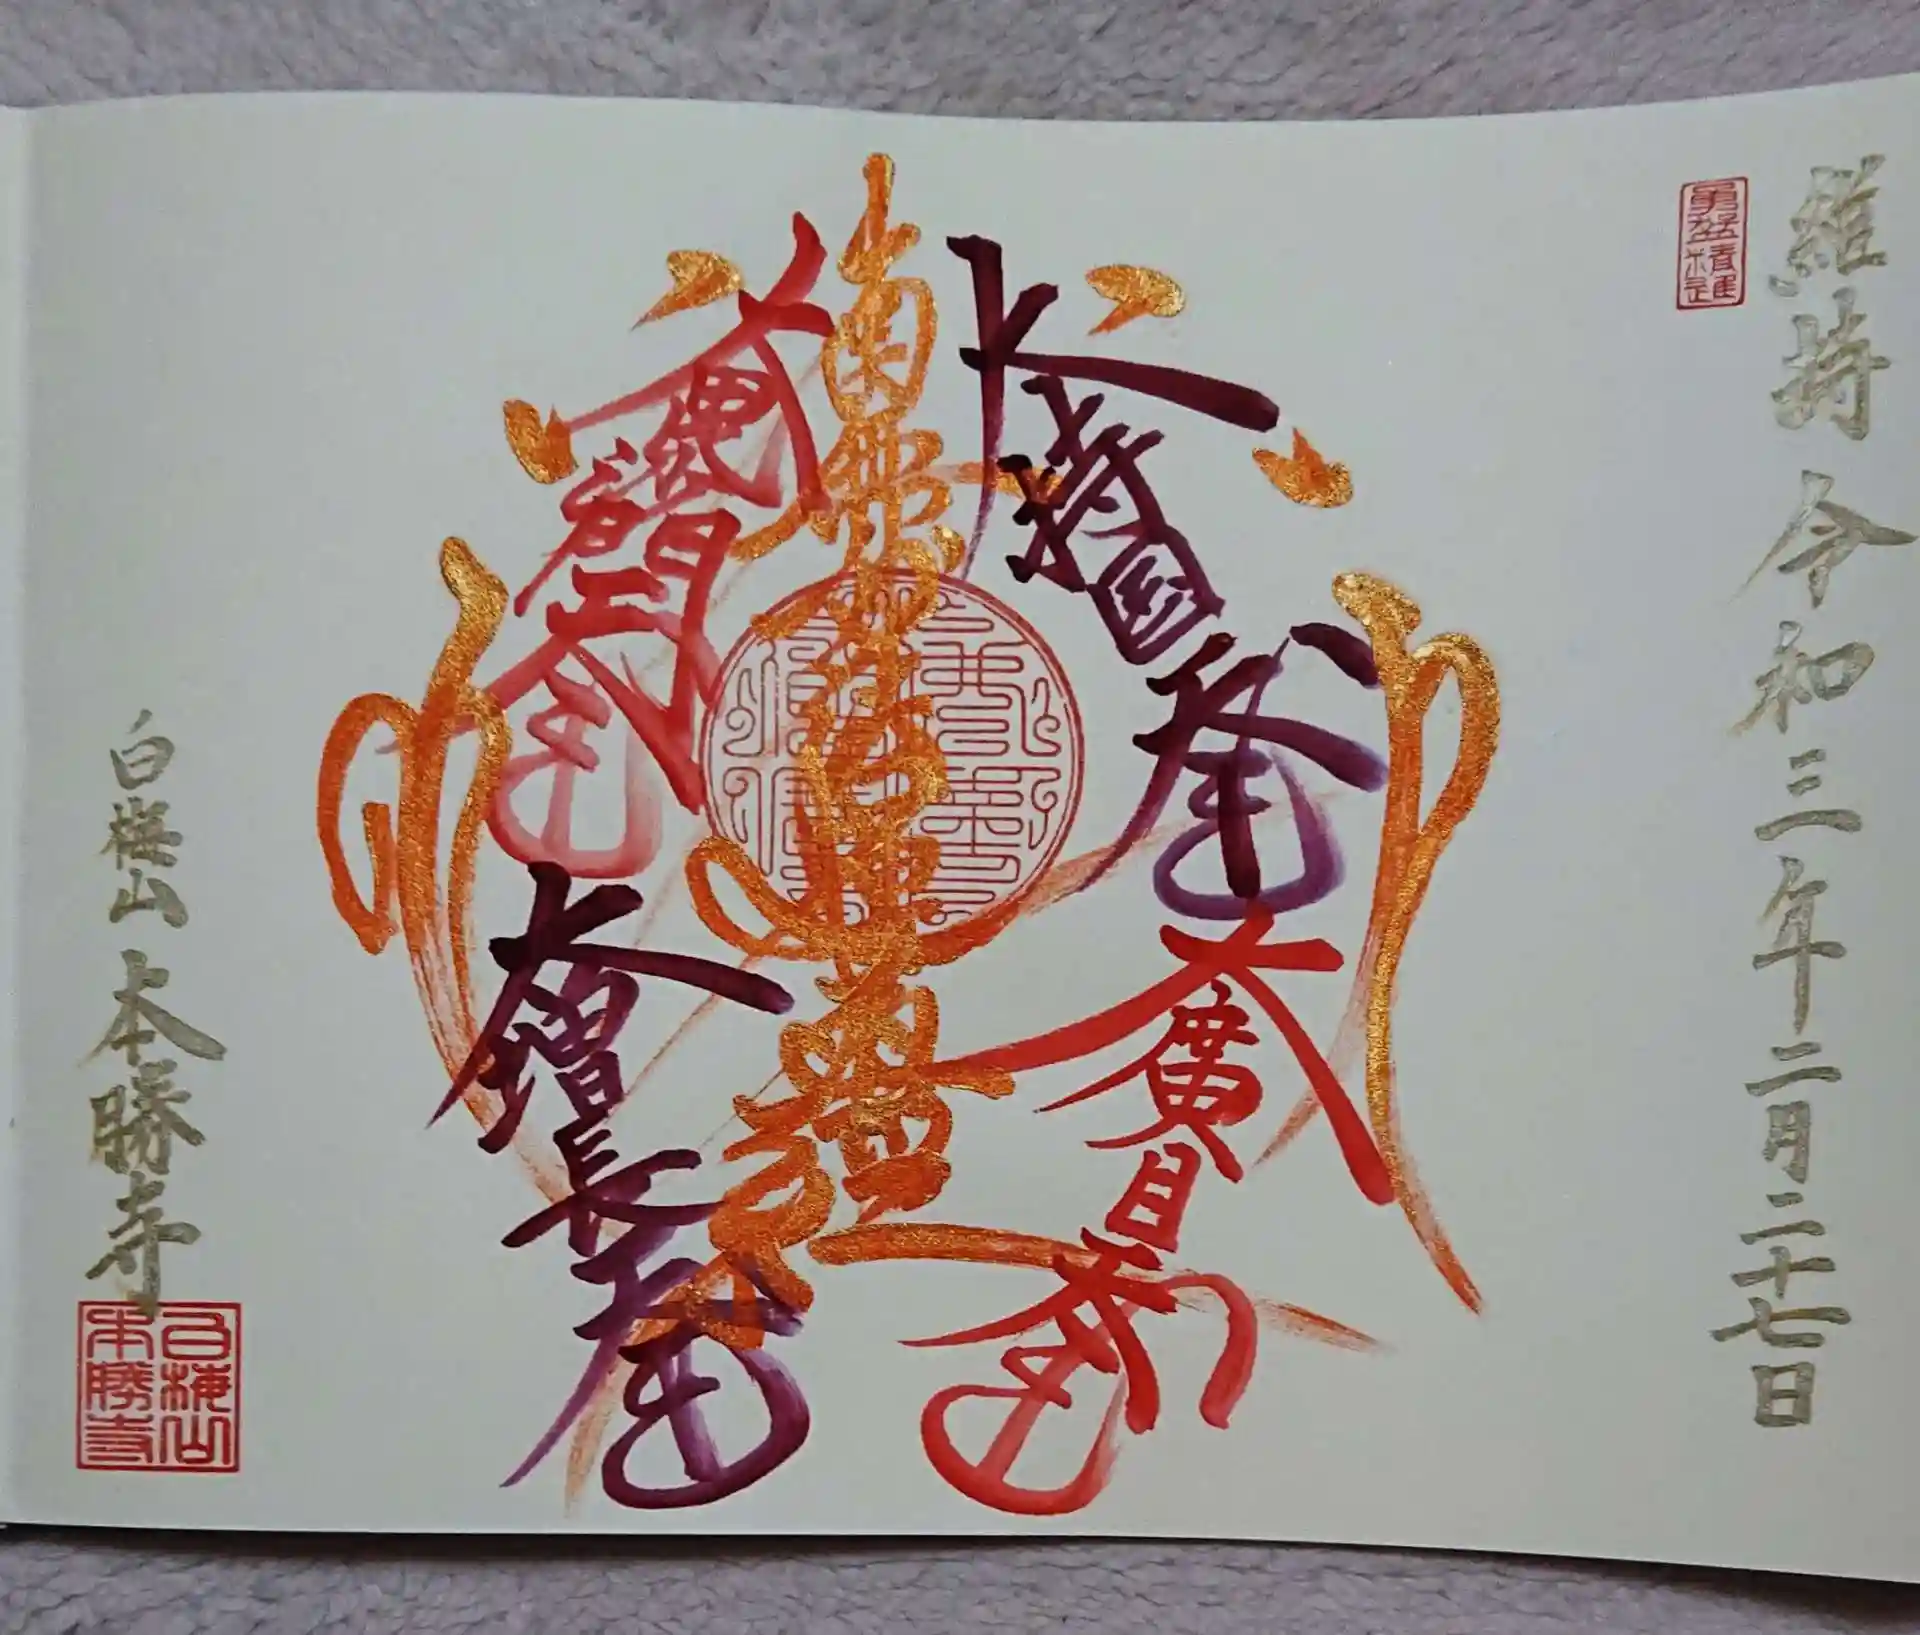 維持 令和三年二月二十七日
勇猛精進
大持国天王
大廣目天王
南無妙法蓮華経
大毘沙門天王
大増長天王
白梅山 本勝寺
白梅山
本勝寺